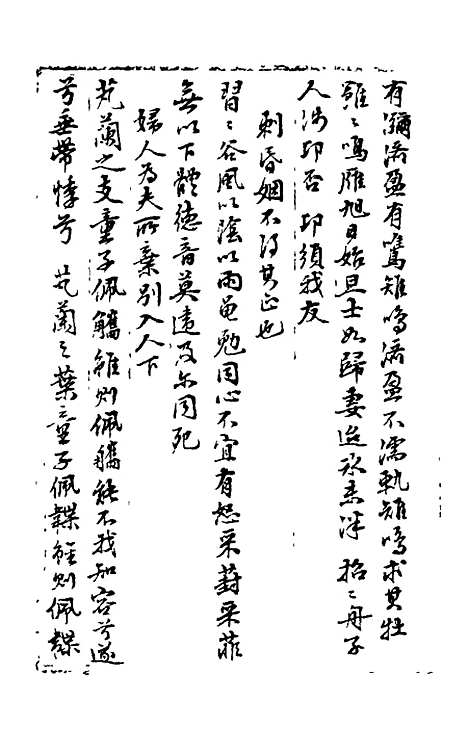 有瀰濟盈有鷕雉鳴濟盈不濡軌雉鳴求其牡
雝〻鳴雁旭日始旦士如歸妻迨冰未泮 招〻舟子
人涉卬否 卬須我友
刺昏姻不得其正也
習〻谷風以陰以雨黽勉同心不宜有怒采葑采菲
無以下體德音莫違及尔同死
婦人為夫所棄別入人下
芄蘭之支童子佩觿雖則佩觿能不我知容兮遂
兮垂帶悸兮 芄蘭之葉童子佩韘雖則佩韘